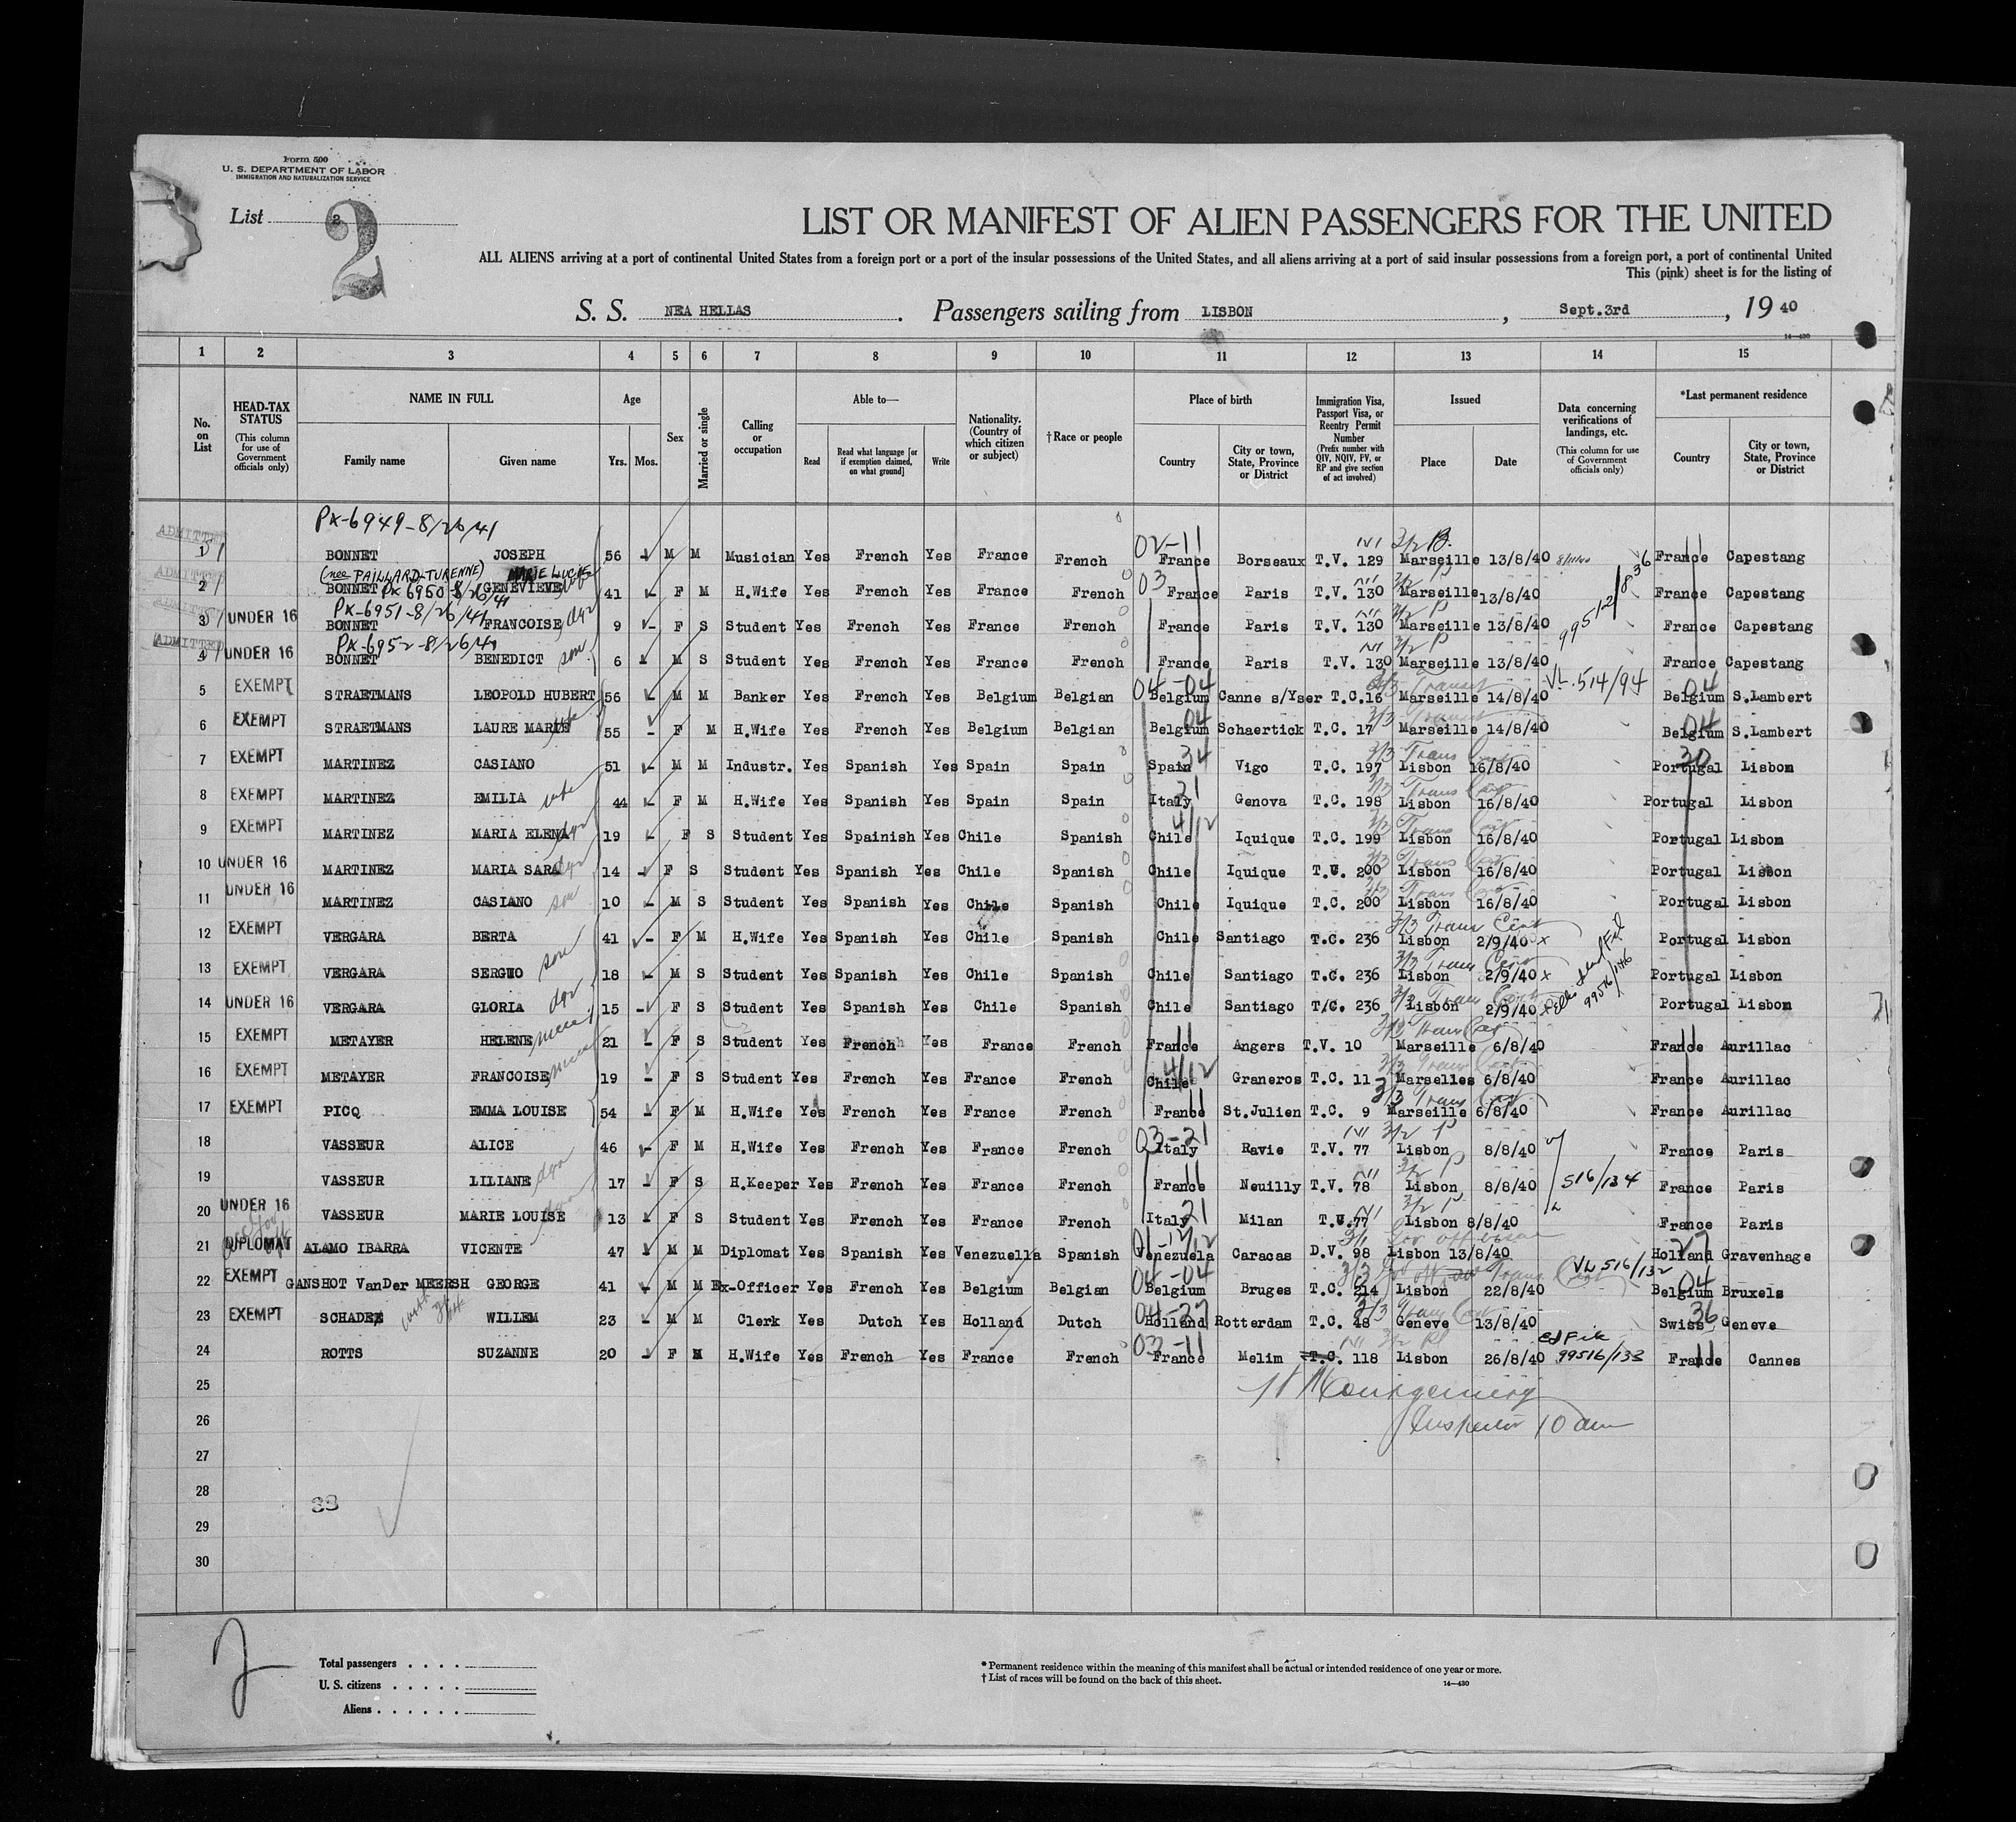 Form 500
U. S. DEPARTMENT OF LABOR
IMMIGRATION AND NATURALIZATION SERVICE
List 2
2
LIST OR MANIFEST OF ALIEN PASSENGERS FOR THE UNITED
ALL ALIENS arriving at a port of continental United States from a foreign port or a port of the insular possessions of the United States, and all aliens arriving at a port of said insular possessions from a foreign port, a port of continental United
This (pink) sheet is for the listing of
S. S. NEA HELLAS. Passengers sailing from LISBON, Sept.3rd, 19 40
14—430
1 2 3 4 5 6 7 8 9 10 11 12 13 14 15
No. on List
HEAD-TAX STATUS (This column for use of Government officials only)
NAME IN FULL Family name Given name
Age Yrs. Mos.
Sex
Married or single
Calling or occupation
Able to— Read Read what language [or if exemption claimed, on what ground] Write
Nationality. (Country of which citizen or subject)
†Race or people
Place of birth Country City or town, State, Province or District
Immigration Visa, Passport Visa, or Reentry Permit Number (Prefix number with QIV, NQIV, FV, or RP and give section of act involved)
Issued Place Date
Data concerning verifications of landings, etc. (This column for use of Government officials only)
*Last permanent residence Country City or town, State, Province or District
PX-6949-8/26/41
ADMITTED 1 BONNET JOSEPH 56 M M Musician Yes French Yes France French 02-11 France Borseaux T.V. 129 Marseille 13/8/40 France 11 Capestang
(nee PAILLARD-TURENNE) MARIE LUCIE
ADMITTED 2 BONNET PX 6950-8/26/41 GENEVIEVE wife 41 F M H.Wife Yes French Yes France French 03 France Paris T.V. 130 Marseille 13/8/40 France Capestang
PX-6951-8/26/41
3 UNDER 16 BONNET FRANCOISE dgr 9 F S Student Yes French Yes France French France Paris T.V. 130 Marseille 13/8/40 99512/836 France Capestang
PX-6952-8/26/41
ADMITTED 4 UNDER 16 BONNET BENEDICT son 6 M S Student Yes French Yes France French France Paris T.V. 130 Marseille 13/8/40 France Capestang
5 EXEMPT STRAETMANS LEOPOLD HUBERT 56 M M Banker Yes French Yes Belgium Belgian 04-04 Belgium Canne s/Yser T.C.16 Marseille 14/8/40 VL.514/94 04 Belgium S.Lambert
6 EXEMPT STRAETMANS LAURE MARIE wife 55 F M H.Wife Yes French Yes Belgium Belgian 04 Belgium Schaertick T.C. 17 Marseille 14/8/40 04 Belgium S.Lambert
7 EXEMPT MARTINEZ CASIANO 51 M M Industr. Yes Spanish Yes Spain Spain 34 Spain Vigo T.C. 197 Lisbon 16/8/40 30 Portugal Lisbon
8 EXEMPT MARTINEZ EMILIA wife 44 F M H.Wife Yes Spanish Yes Spain Spain 21 Italy Genova T.C. 198 Lisbon 16/8/40 Portugal Lisbon
9 EXEMPT MARTINEZ MARIA ELENA dgr 19 F S Student Yes Spainish Yes Chile Spanish 4/12 Chile Iquique T.C. 199 Lisbon 16/8/40 Portugal Lisbon
10 UNDER 16 MARTINEZ MARIA SARA dgr 14 F S Student Yes Spanish Yes Chile Spanish Chile Iquique T.C. 200 Lisbon 16/8/40 Portugal Lisbon
11 UNDER 16 MARTINEZ CASIANO son 10 M S Student Yes Spanish Yes Chile Spanish Chile Iquique T.C. 200 Lisbon 16/8/40 Portugal Lisbon
12 EXEMPT VERGARA BERTA 41 F M H.Wife Yes Spanish Yes Chile Spanish Chile Santiago T.C. 236 Lisbon 2/9/40 x Portugal Lisbon
13 EXEMPT VERGARA SERGIO son 18 M S Student Yes Spanish Yes Chile Spanish Chile Santiago T.C. 236 Lisbon 2/9/40 x 99516/146 Portugal Lisbon
14 UNDER 16 VERGARA GLORIA dgr 15 F S Student Yes Spanish Yes Chile Spanish Chile Santiago T/C. 236 Lisbon 2/9/40 x Portugal Lisbon
15 EXEMPT METAYER HELENE niece 21 F S Student Yes French Yes France French 11 France Angers T.V. 10 Marseille 6/8/40 11 France Aurillac
16 EXEMPT METAYER FRANCOISE niece 19 F S Student Yes French Yes France French 4/12 Chile Graneros T.C. 11 Marselles 6/8/40 France Aurillac
17 EXEMPT PICQ EMMA LOUISE 54 F M H.Wife Yes French Yes France French 11 France St.Julien T.C. 9 Marseille 6/8/40 France Aurillac
18 VASSEUR ALICE 46 F M H.Wife Yes French Yes France French 03-21 Italy Ravie T.V. 77 Lisbon 8/8/40 France Paris
19 VASSEUR LILIANE dgr 17 F S H.Keeper Yes French Yes France French 11 France Neuilly T.V. 78 Lisbon 8/8/40 516/134 France Paris
20 UNDER 16 VASSEUR MARIE LOUISE dgr 13 F S Student Yes French Yes France French 21 Italy Milan T.V.77 Lisbon 8/8/40 France Paris
21 DIPLOMAT ALAMO IBARRA VICENTE 47 M M Diplomat Yes Spanish Yes Venezuella Spanish Venezuela Caracas D.V. 98 Lisbon 13/8/40 27 Holland Gravenhage
22 EXEMPT GANSHOT VanDer MEERSH GEORGE 41 M M Ex-Officer Yes French Yes Belgium Belgian 04-04 Belgium Bruges T.C. 214 Lisbon 22/8/40 VL 516/132 04 Belgium Bruxels
23 EXEMPT SCHADEE WILLEM 23 M M Clerk Yes Dutch Yes Holland Dutch 04-27 Holland Rotterdam T.C. 48 Geneve 13/8/40 36 Swiss Geneve
24 ROTTS SUZANNE 20 F M H.Wife Yes French Yes France French 03-11 France Melim T.C. 118 Lisbon 26/8/40 99516/133 11 France Cannes
25 Montgomery
26 Inspector 10 am
27
28
33
29
30
2
Total passengers . . . .
U. S. citizens . . . . .
Aliens . . . . . .
* Permanent residence within the meaning of this manifest shall be actual or intended residence of one year or more.
† List of races will be found on the back of this sheet.
14—430